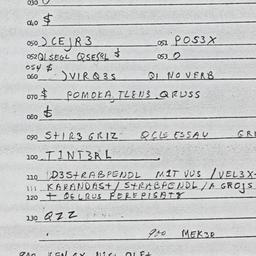 030
040 $
050 ) CEJR3 051 POS3X
052 QISEGL QSEGRL $ 053 O
054 $
060 )VIRQ3S QI NOVERB
070 $ POMOKA, TLENS QRUSS
080 $
090 S+IR3 GRIZ QCLG ESSAU GRI
100 TINT3RL
110 D3S+RABPENDL MIT VUS /VEL3X-
111 KARANDAS+/ S+RABPENDL /A GROJS
120 + GELQUS PEREPISAT8
130 QZZ
900 MEK3R